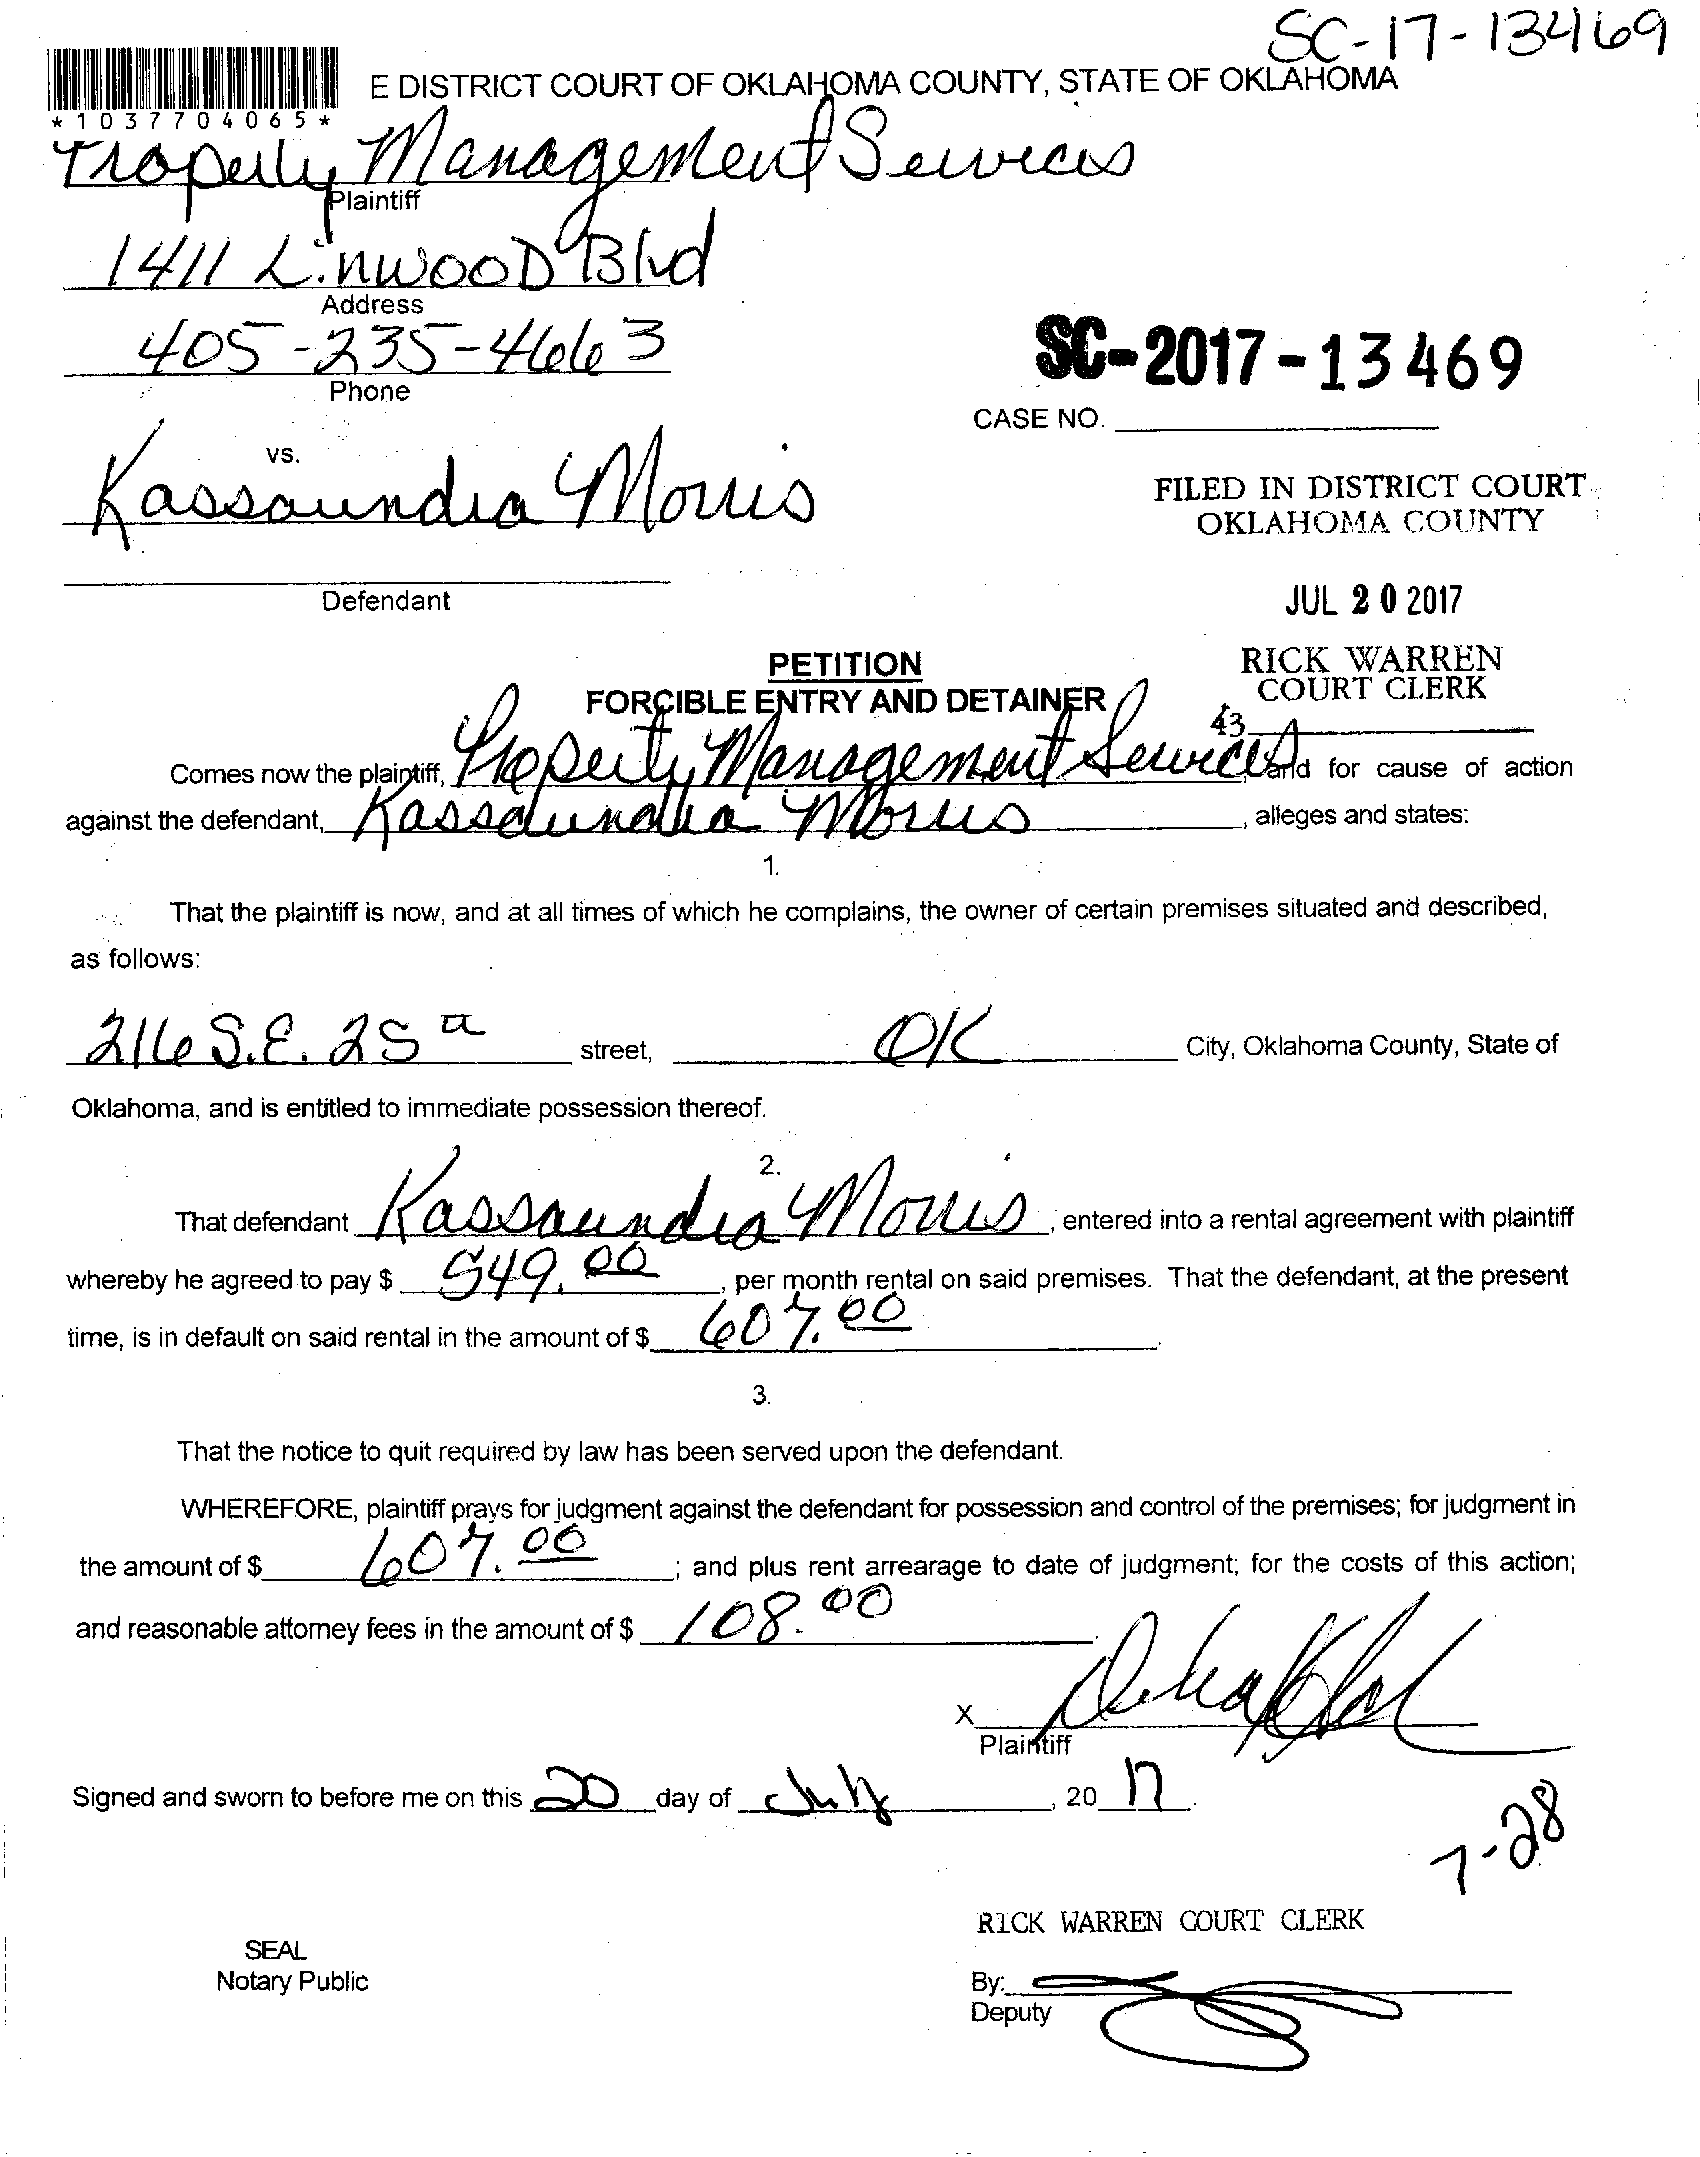 SC-17-13469
E DISTRICT COURT OF OKLAHOMA COUNTY, STATE OF OKLAHOMA
*1037704065*
Property Management Services
Plaintiff
1411 Linwood Blvd
Address
405-235-4663
Phone
SC-2017-13469
CASE NO.
vs.
Kassaundra Morris
FILED IN DISTRICT COURT
OKLAHOMA COUNTY
Defendant
JUL 20 2017
PETITION
RICK WARREN
FORCIBLE ENTRY AND DETAINER
COURT CLERK
43
Comes now the plaintiff, Property Management Services and for cause of action
against the defendant, Kassaundra Morris, alleges and states:
1.
That the plaintiff is now, and at all times of which he complains, the owner of certain premises situated and described,
as follows:
216 S.E. 25 a street, OK City, Oklahoma County, State of
Oklahoma, and is entitled to immediate possession thereof.
2.
That defendant Kassaundra Morris, entered into a rental agreement with plaintiff
whereby he agreed to pay $ 549.00, per month rental on said premises. That the defendant, at the present
time, is in default on said rental in the amount of $ 607.00.
3.
That the notice to quit required by law has been served upon the defendant.
WHEREFORE, plaintiff prays for judgment against the defendant for possession and control of the premises; for judgment in
the amount of $ 607.00; and plus rent arrearage to date of judgment; for the costs of this action;
and reasonable attorney fees in the amount of $ 108.00.
X
Plaintiff
Signed and sworn to before me on this 20 day of July, 20 17.
7-28
RICK WARREN COURT CLERK
SEAL
Notary Public
By:
Deputy